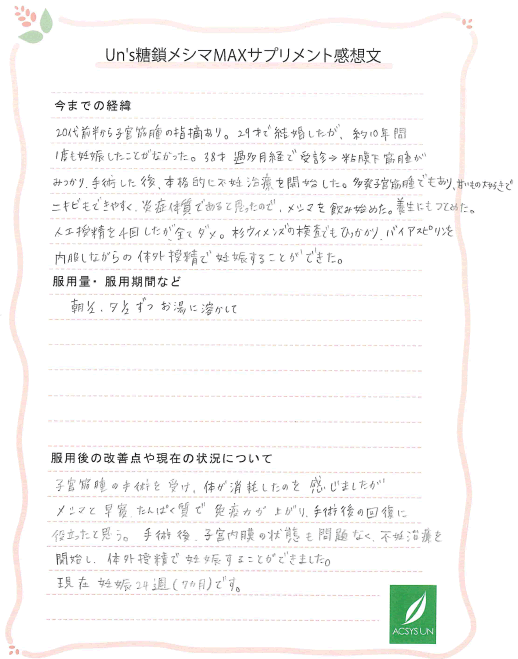 Un's糖鎖メシマMAXサプリメント感想文
今までの経緯
20代前半から子宮筋腫の指摘あり。29才で結婚したが、約10年間
1度も妊娠したことがなかった。38才 過多月経で受診→粘膜下筋腫が
みつかり、手術した後、本格的に不妊治療を開始した。多発子宮筋腫でもあり、甘いもの大好きで
ニキビもできやすく、炎症体質であると思ったので、メシマを飲み始めた。養生にもつとめた。
人工授精を4回したが、全てダメ。杉ウイメンズの検査でもひっかかり、バイアスピリンを
内服しながらの体外授精で妊娠することができた。
服用量・服用期間など
朝1/2、夕1/2ずつ お湯に溶かして
服用後の改善点や現在の状況について
子宮筋腫の手術を受け、体が消耗したのを感じましたが
メシマと早寝、たんぱく質で免疫力が上がり、手術後の回復に
役立ったと思う。手術後、子宮内膜の状態も問題なく、不妊治療を
開始し、体外授精で妊娠することができました。
現在 妊娠24週(7カ月)です。
ACSYS UN